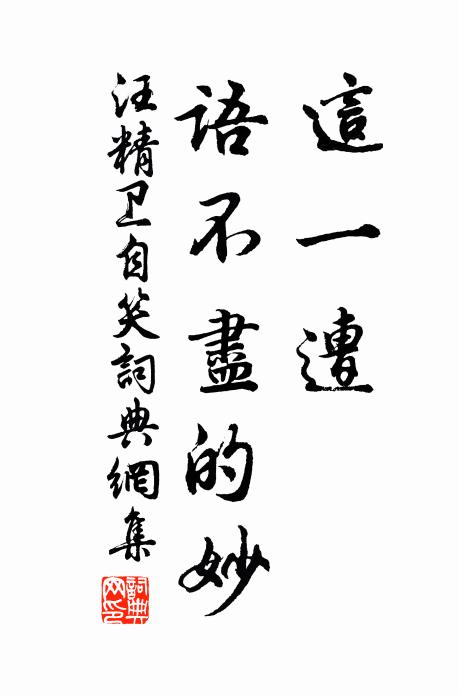 這一遭
語不盡的妙
汪精卫自笑詞典網集
詞典網印